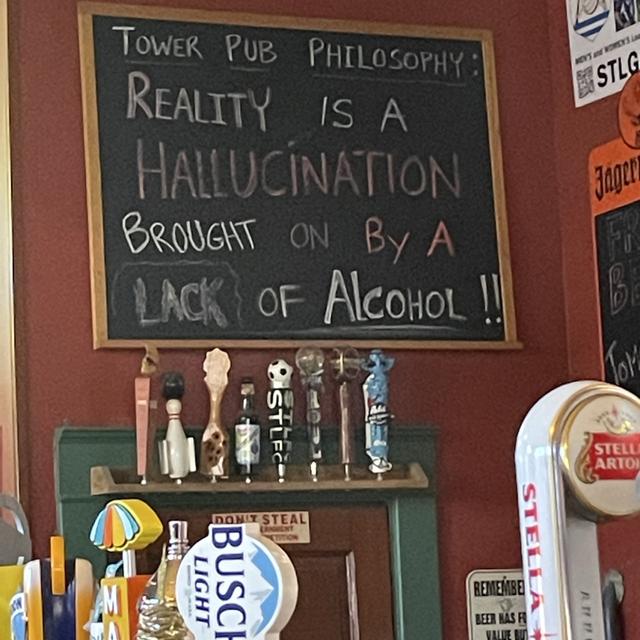 TOWER PUB PHILOSOPHY:
REALITY IS A
HALLUCINATION
BROUGHT ON By A
LACK OF ALCOHOL !!
STLG
Jägerm
STLFC
DON'T STEAL
BUSCH
LIGHT
MA
STELLA
ARTOI
STELLA
REMEMBE
BEER HAS FO
VALUE BUT